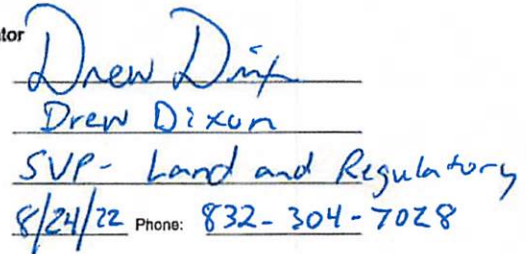 ator
Drew Dix
Drew Dixon
SVP- Land and Regulatory
8/24/22 Phone: 832-304-7028